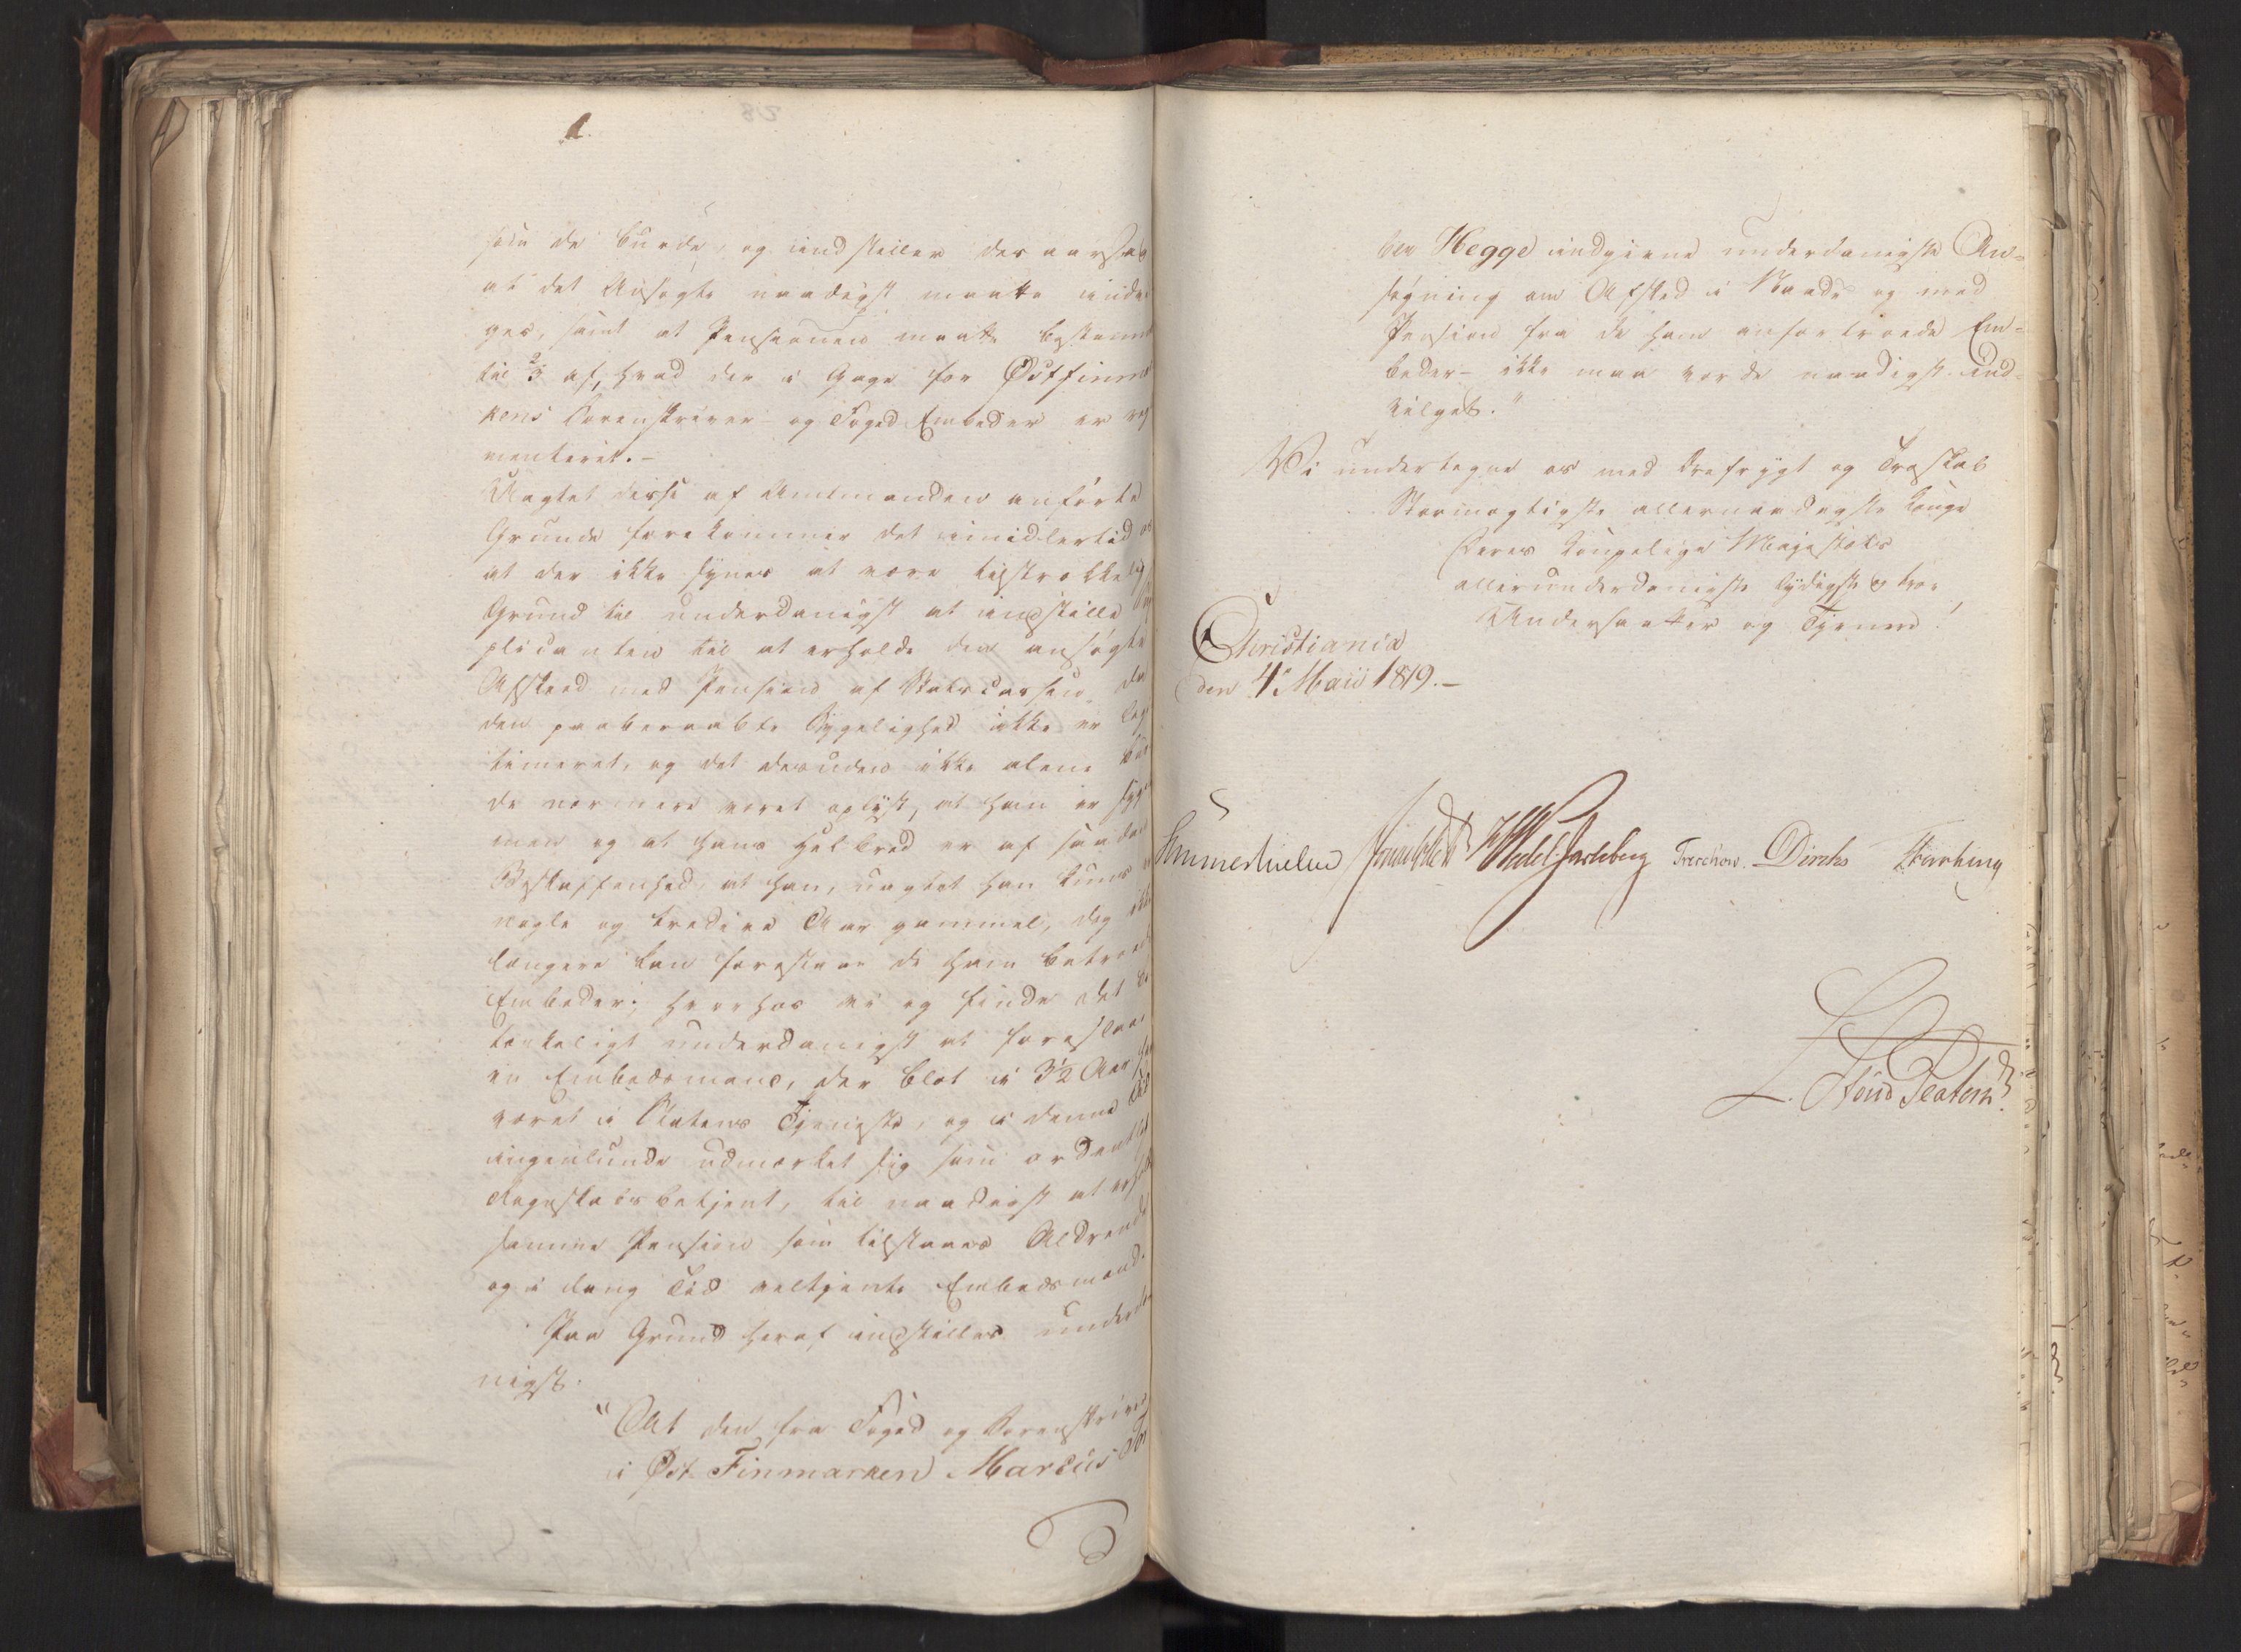 som de burde, og indstiller des aarsag
at det Ansøgte naadigst maatte inde
ges, samt at Pensionen maatte bestemm
til 2/3 af, hvad der i Gage for Østfinma
kens Sorenskriver- og Foged Embeder er reg
menteret.-
Uagtet disse af Amtmanden anførte
Grunde forekommer det imidlertid os
at der ikke synes at være tilstrækkelig
Grund til underdanigst at indstille
plicanten til at erholde den ansøgte
Afskeed med Pension af Statscassen, da
den paaberaabte Sygelighed ikke er leg
timeret, og det desuden ikke alene
de nærmere været oplyst, at han er syge
men og at hans Helbred er af saadan
Beskaffenhed, at han, uagtet han kuns
nogle og tredive Aar gammel, dog ikke
længere kan forestaae de ham betroed
Embeder; hvorhos vi og finde det be
tænkeligt underdanigst at foreslaae
en Embedsmand, der blot i 3½ Aar har
været i Statens Tjeneste, og i denne Tid
ingenlunde udmærket sig som ordentlig
Regnskabsbetjent, til naadigst at erhold
samme Pension som tilstaaes Aldrende
og i lang Tid veltjente Embedsmænd.
Paa Grund heraf indstilles underda
nigst.
"At den fra Foged og Sorenskriver
i Øst-Finmarken Marcus
ber Hegge indgivne underdanigste An=
søgning om Afsked i Naade og med
Pension fra de ham anfortroede Em=
beder- ikke maa vorde naadigst ind-
vilget."
Vi undertegne os med Ærefrygt og Troskab
Stormægtigste allernaadigste Konge
Deres Kongelige Majestæts
allerunderdanigste lydigste og troe
Undersaatter og Tjenere!
Christiania
den 4. Maii 1819.-
Sommerhielm Wedel Jarlsberg Treschow. Diriks